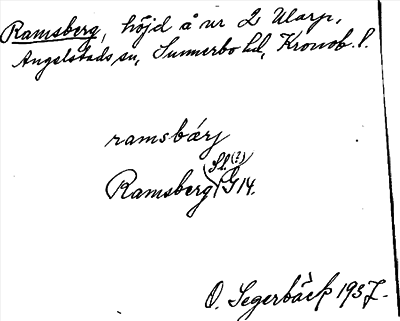 Ramsberg, höjd å nr 2 Ularp,
Angelstads sn, Sunnerbo hd, Kronob. l.
ramsbærj
Sk. (?)
Ramsberg G 14.
O. Segerbäck 1937.